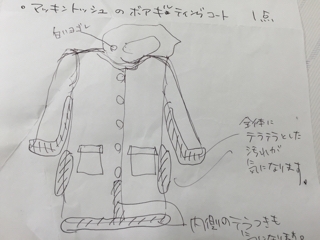 ・マッキントッシュのボアギ・ティングコート　1点
白いヨゴレ
全体に
テラテラとした
汚れが
気になります
内側のテラつきも
気になります。